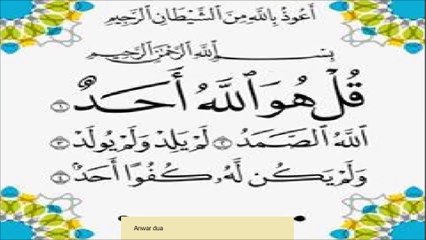 أَعُوذُ بِاللَّهِ مِنَ الشَّيْطَانِ الرَّجِيمِ
بِسْمِ اللَّهِ الرَّحْمَٰنِ الرَّحِيمِ
قُلْ هُوَ ٱللَّهُ أَحَدٌ ١
ٱللَّهُ ٱلصَّمَدُ ٢ لَمْ يَلِدْ وَلَمْ يُولَدْ ٣
وَلَمْ يَكُن لَّهُۥ كُفُوًا أَحَدٌۢ ٤
Anwar dua